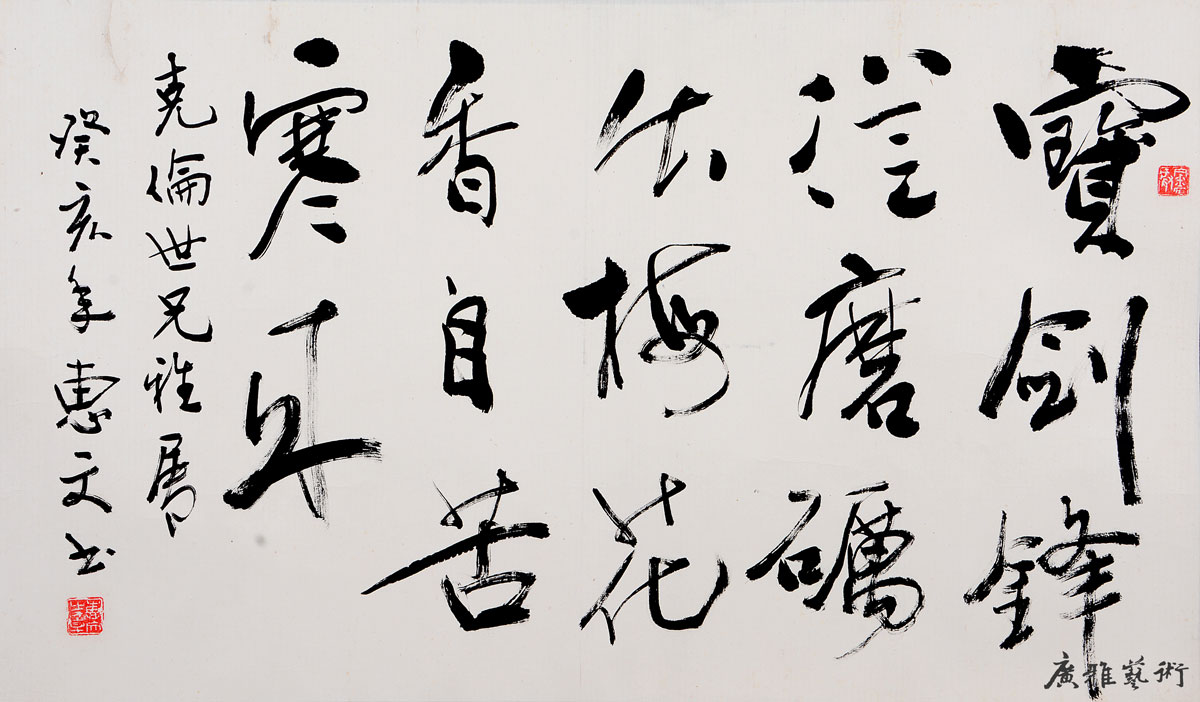 寶劍鋒
從磨礪
出梅花
香自苦
寒來
克倫世兄雅屬
癸亥年惠文書
廣雅藝術